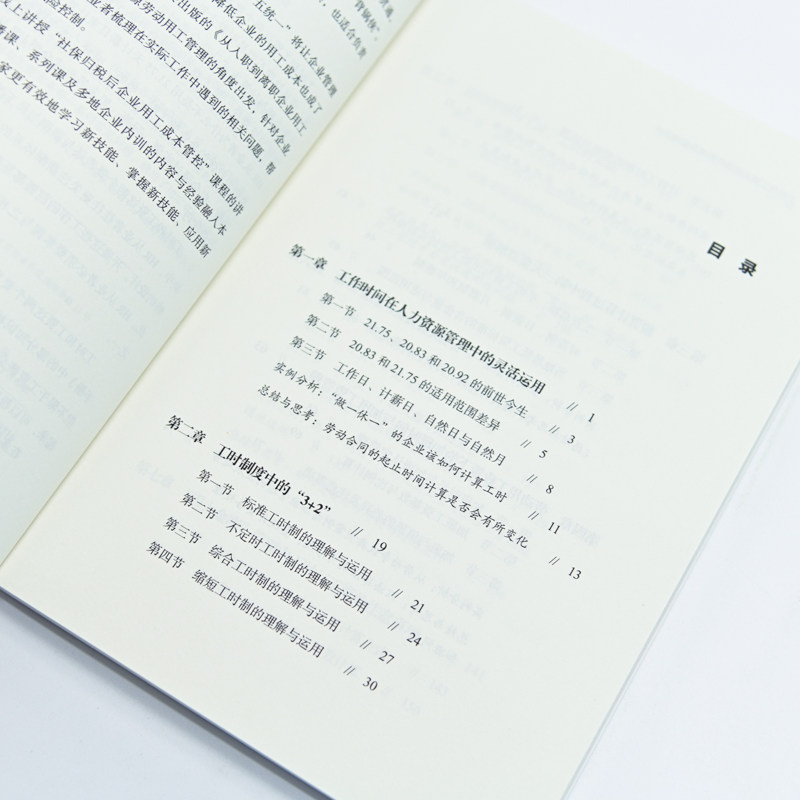 五统一”将让企业管理
降低企业的用工成本也成了
出版的《从入职到离职企业用工
劳动用工管理的角度出发，针对企业
业者梳理在实际工作中遇到的相关问题，帮
控制。
上讲授“社保归税后企业用工成本管控”课程的讲
课、系列课及多地企业内训的内容与经验融入本
家更有效地学习新技能、掌握新技能、应用新
目 录
第一章 工作时间在人力资源管理中的灵活运用 // 1
第一节 21.75、20.83 和 20.92 的前世今生 // 3
第二节 20.83 和 21.75 的适用范围差异 // 5
第三节 工作日、计薪日、自然日与自然月 // 8
实例分析：“做一休一”的企业该如何计算工时 // 11
总结与思考：劳动合同的起止时间计算是否会有所变化 // 13
第二章 工时制度中的“3+2” // 19
第一节 标准工时制的理解与运用 // 21
第二节 不定时工时制的理解与运用 // 24
第三节 综合工时制的理解与运用 // 27
第四节 缩短工时制的理解与运用 // 30